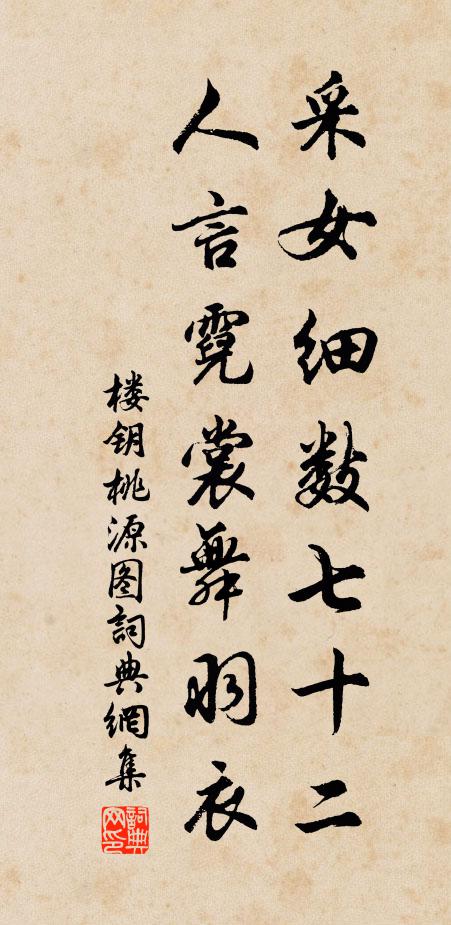 采女细数七十二
人言霓裳舞羽衣
楼钥桃源图詞典網集
詞典网印